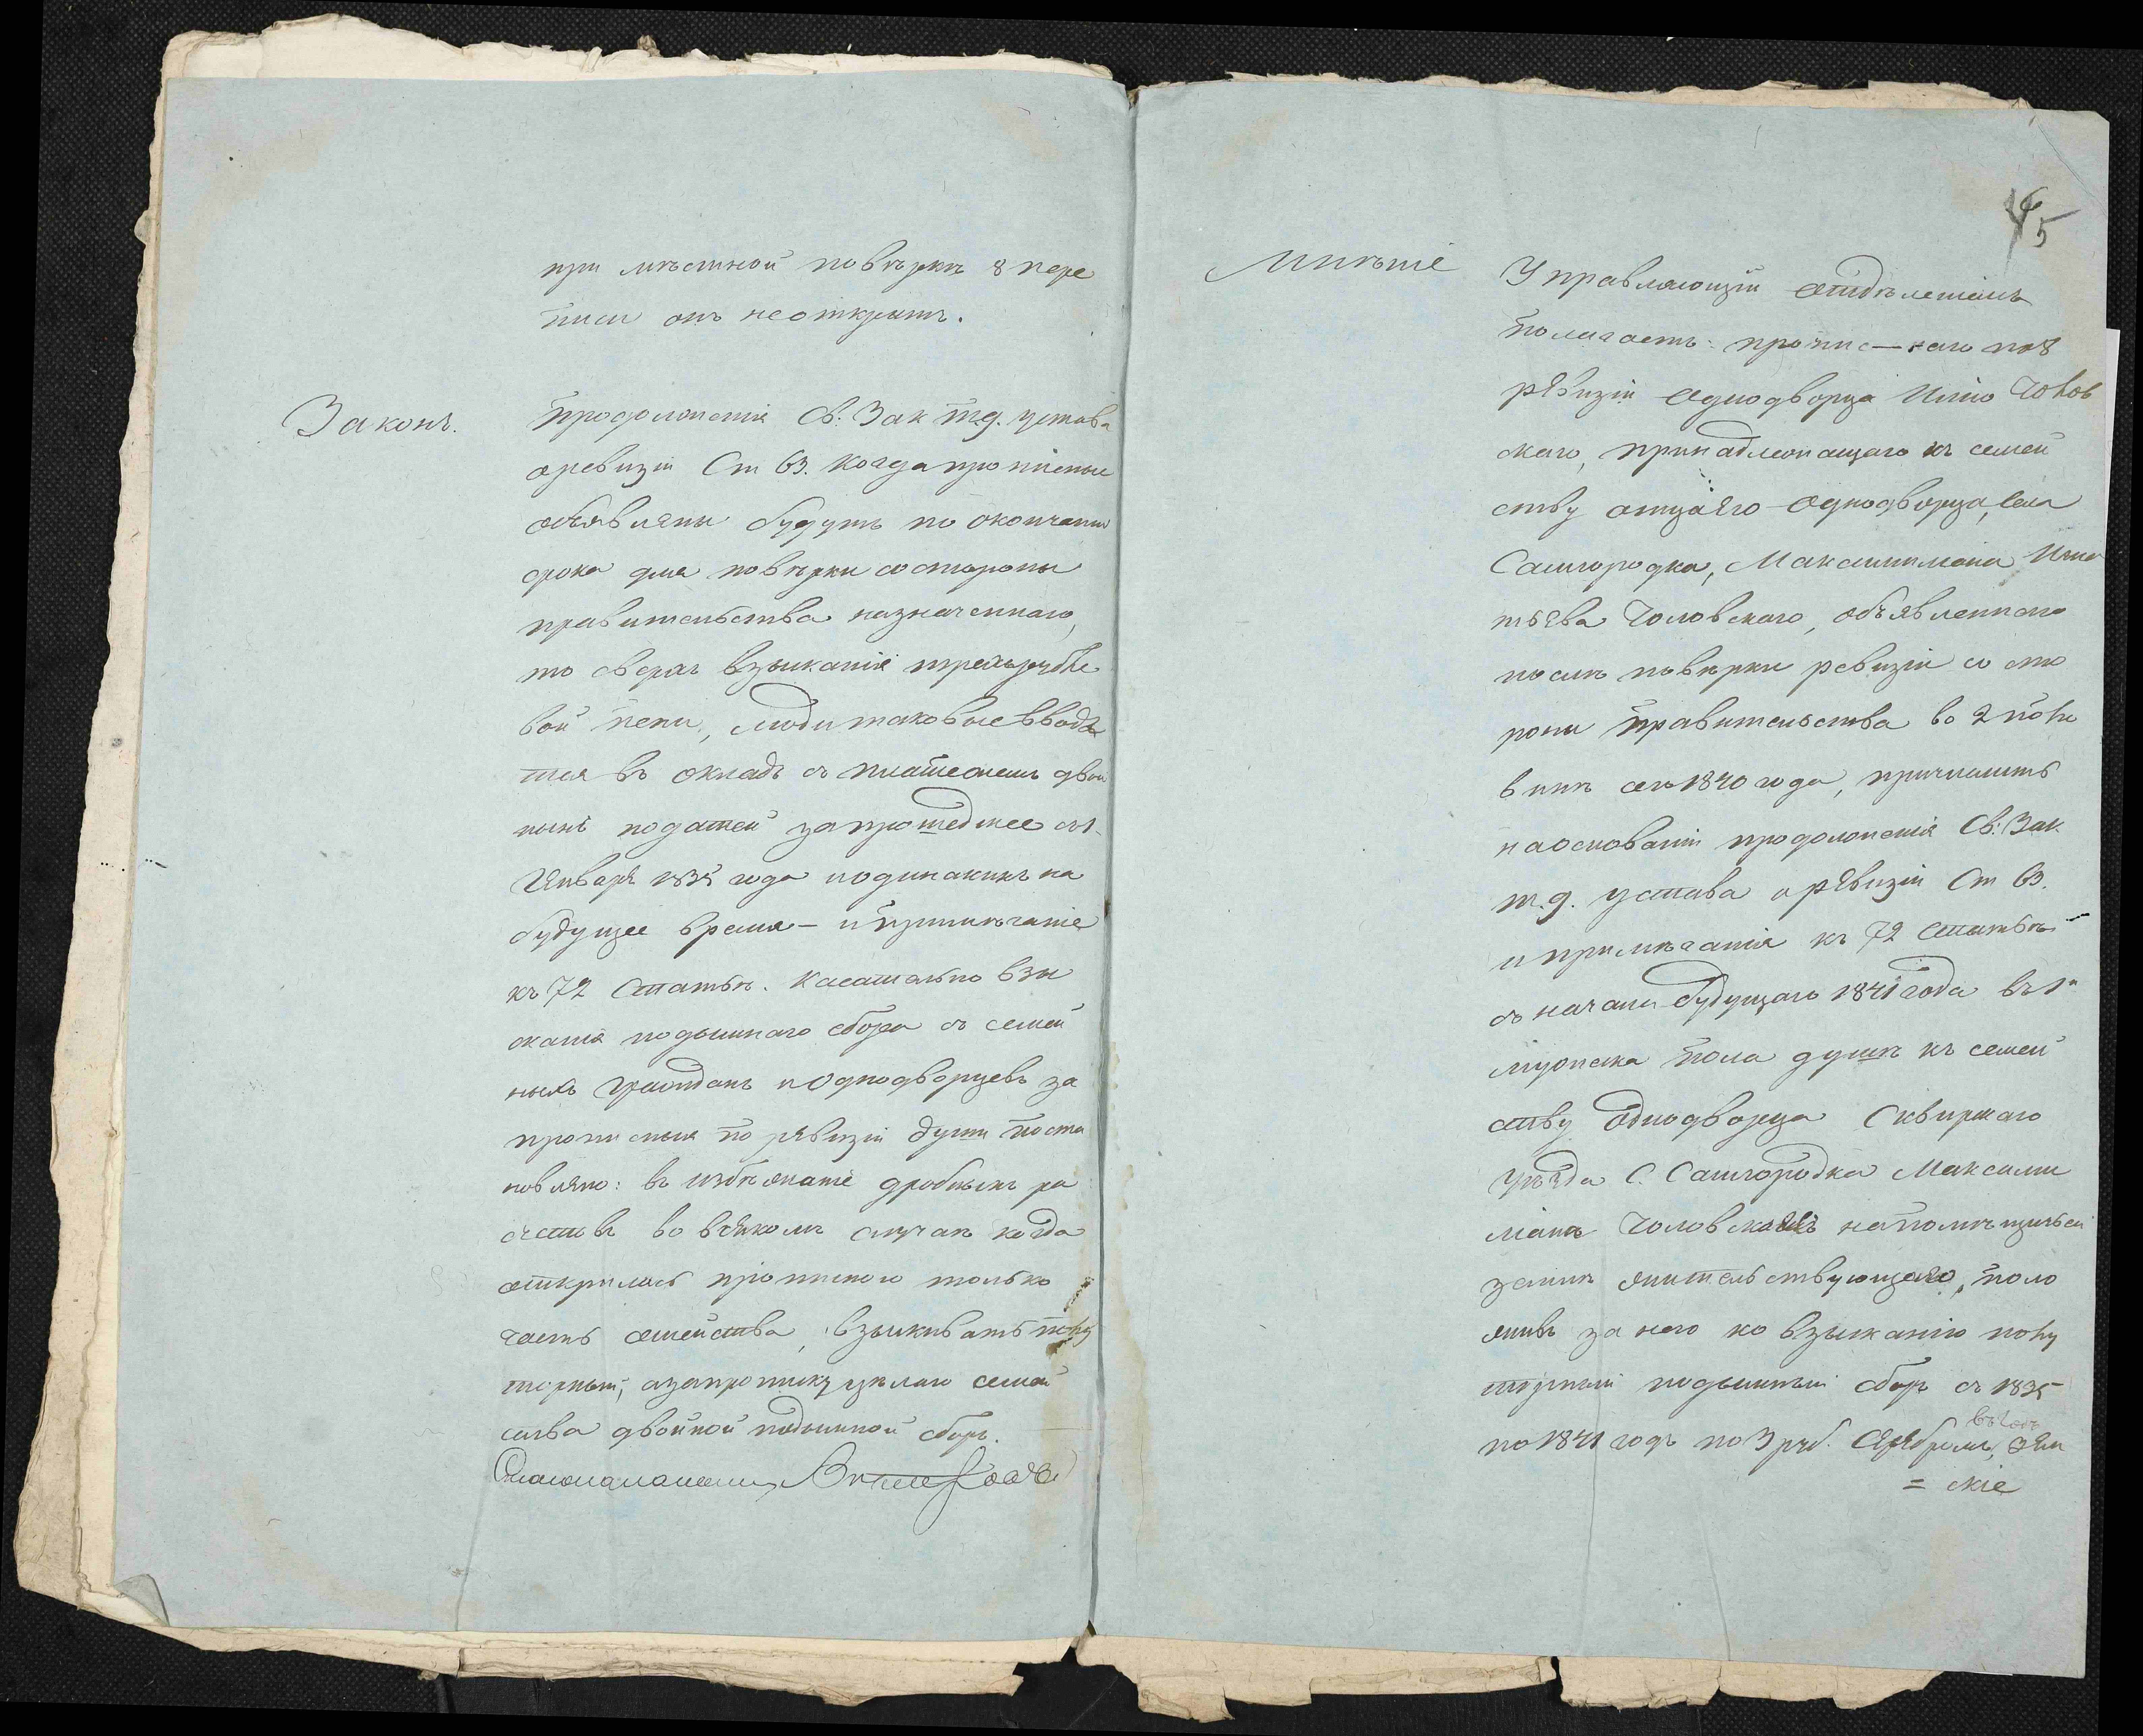 при мѣстной повѣркѣ 8 пере
писи онъ неоткрытъ.
Законъ.
Продолженія Св: Зак т.9. устава
оревизіи Ст 63. Когда прописные
объявлены будутъ по окончаніи
срока для повѣрки состороны
правительства назначеннаго,
то сверхъ взысканія трехъ рубле
вой пени, люди таковые вводят
тся въ окладъ съ платежемъ двой
ныхъ податей запрошедшее съ 1.
Января 1835 года иодинакихъ на
будущее время – ипримѣчаніе
къ 72 Статьѣ. Касательно взы
сканія подымнаго сбора съ семей
ныхъ Гражданъ иОднодворцевъ за
прописныя по ревизіи души поста
новлено: въ избѣжаніе дробныхъ ра
счетовъ во всякомъ случаѣ когда
открылась прописною только
часть семейства, взыскивать полу
торный, азапрописку цѣлаго семей
ства двойной подымной сборъ.
45
Мнѣніе
Управляющій Отдѣленіемъ
полагаетъ: прописнаго по 8
ревизіи Однодворца Чолов
скаго, принадлежащаго къ семей
ству отца его Однодворца, села
Самгородка, Максимиліана Игна
тьева Чоловскаго, объявленнаго
послѣ повѣрки ревизіи со сто
роны Правительства во 2 поло
винѣ сего 1840 года, причислить
наоснованіи продолженія Св: Зак.
т.9. устава оревизіи Ст 63.
ипримѣчанія къ 72 Статьѣ
съ начала будущаго 1841 года въ 1й
мужеска пола душѣ къ семей
ству Однодворца Сквирскаго
уѣзда С. Самгородка Максими
ліана Чоловскаго напомѣщичьей
землѣ жительствующаго, поло
живъ за него ко взысканію полу
торный подымный сборъ съ 1835
по 1841 годъ по 3 руб. Серебромъ въ годъ, Зем
= скіе